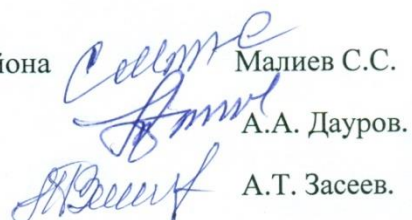 йона Малиев С.С.
А.А. Дауров.
А.Т. Засеев.